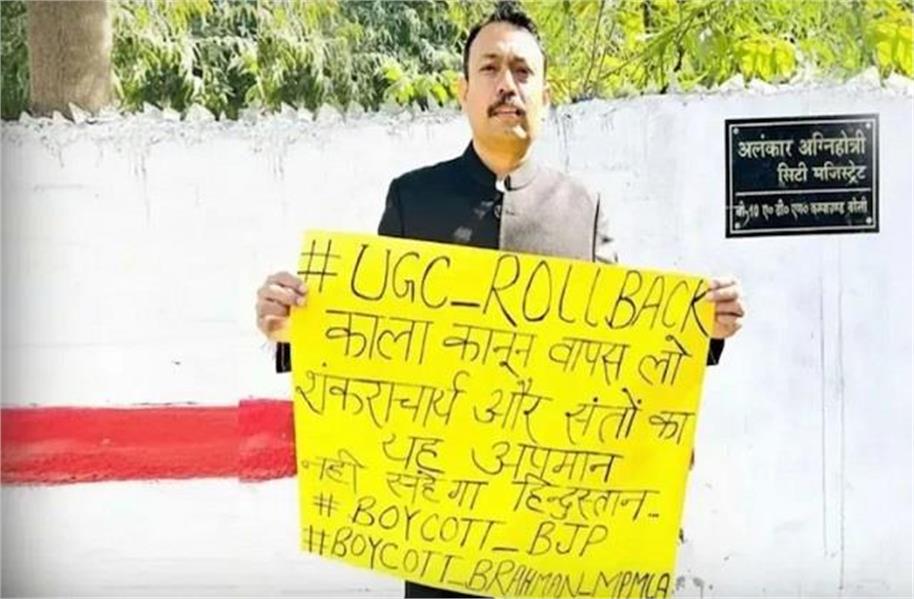 अलंकार अग्निहोत्री
सिटी मजिस्ट्रेट
बी,10 ए० डी० एम० कम्पाउण्ड
#UGC_ROLLBACK
काला कानून वापस लो
शंकराचार्य और संतों का
यह अपमान
नही सहेगा हिन्दुस्तान...
#BOYCOTT_BJP
#BOYCOTT_BRAHMAN_MPMLA